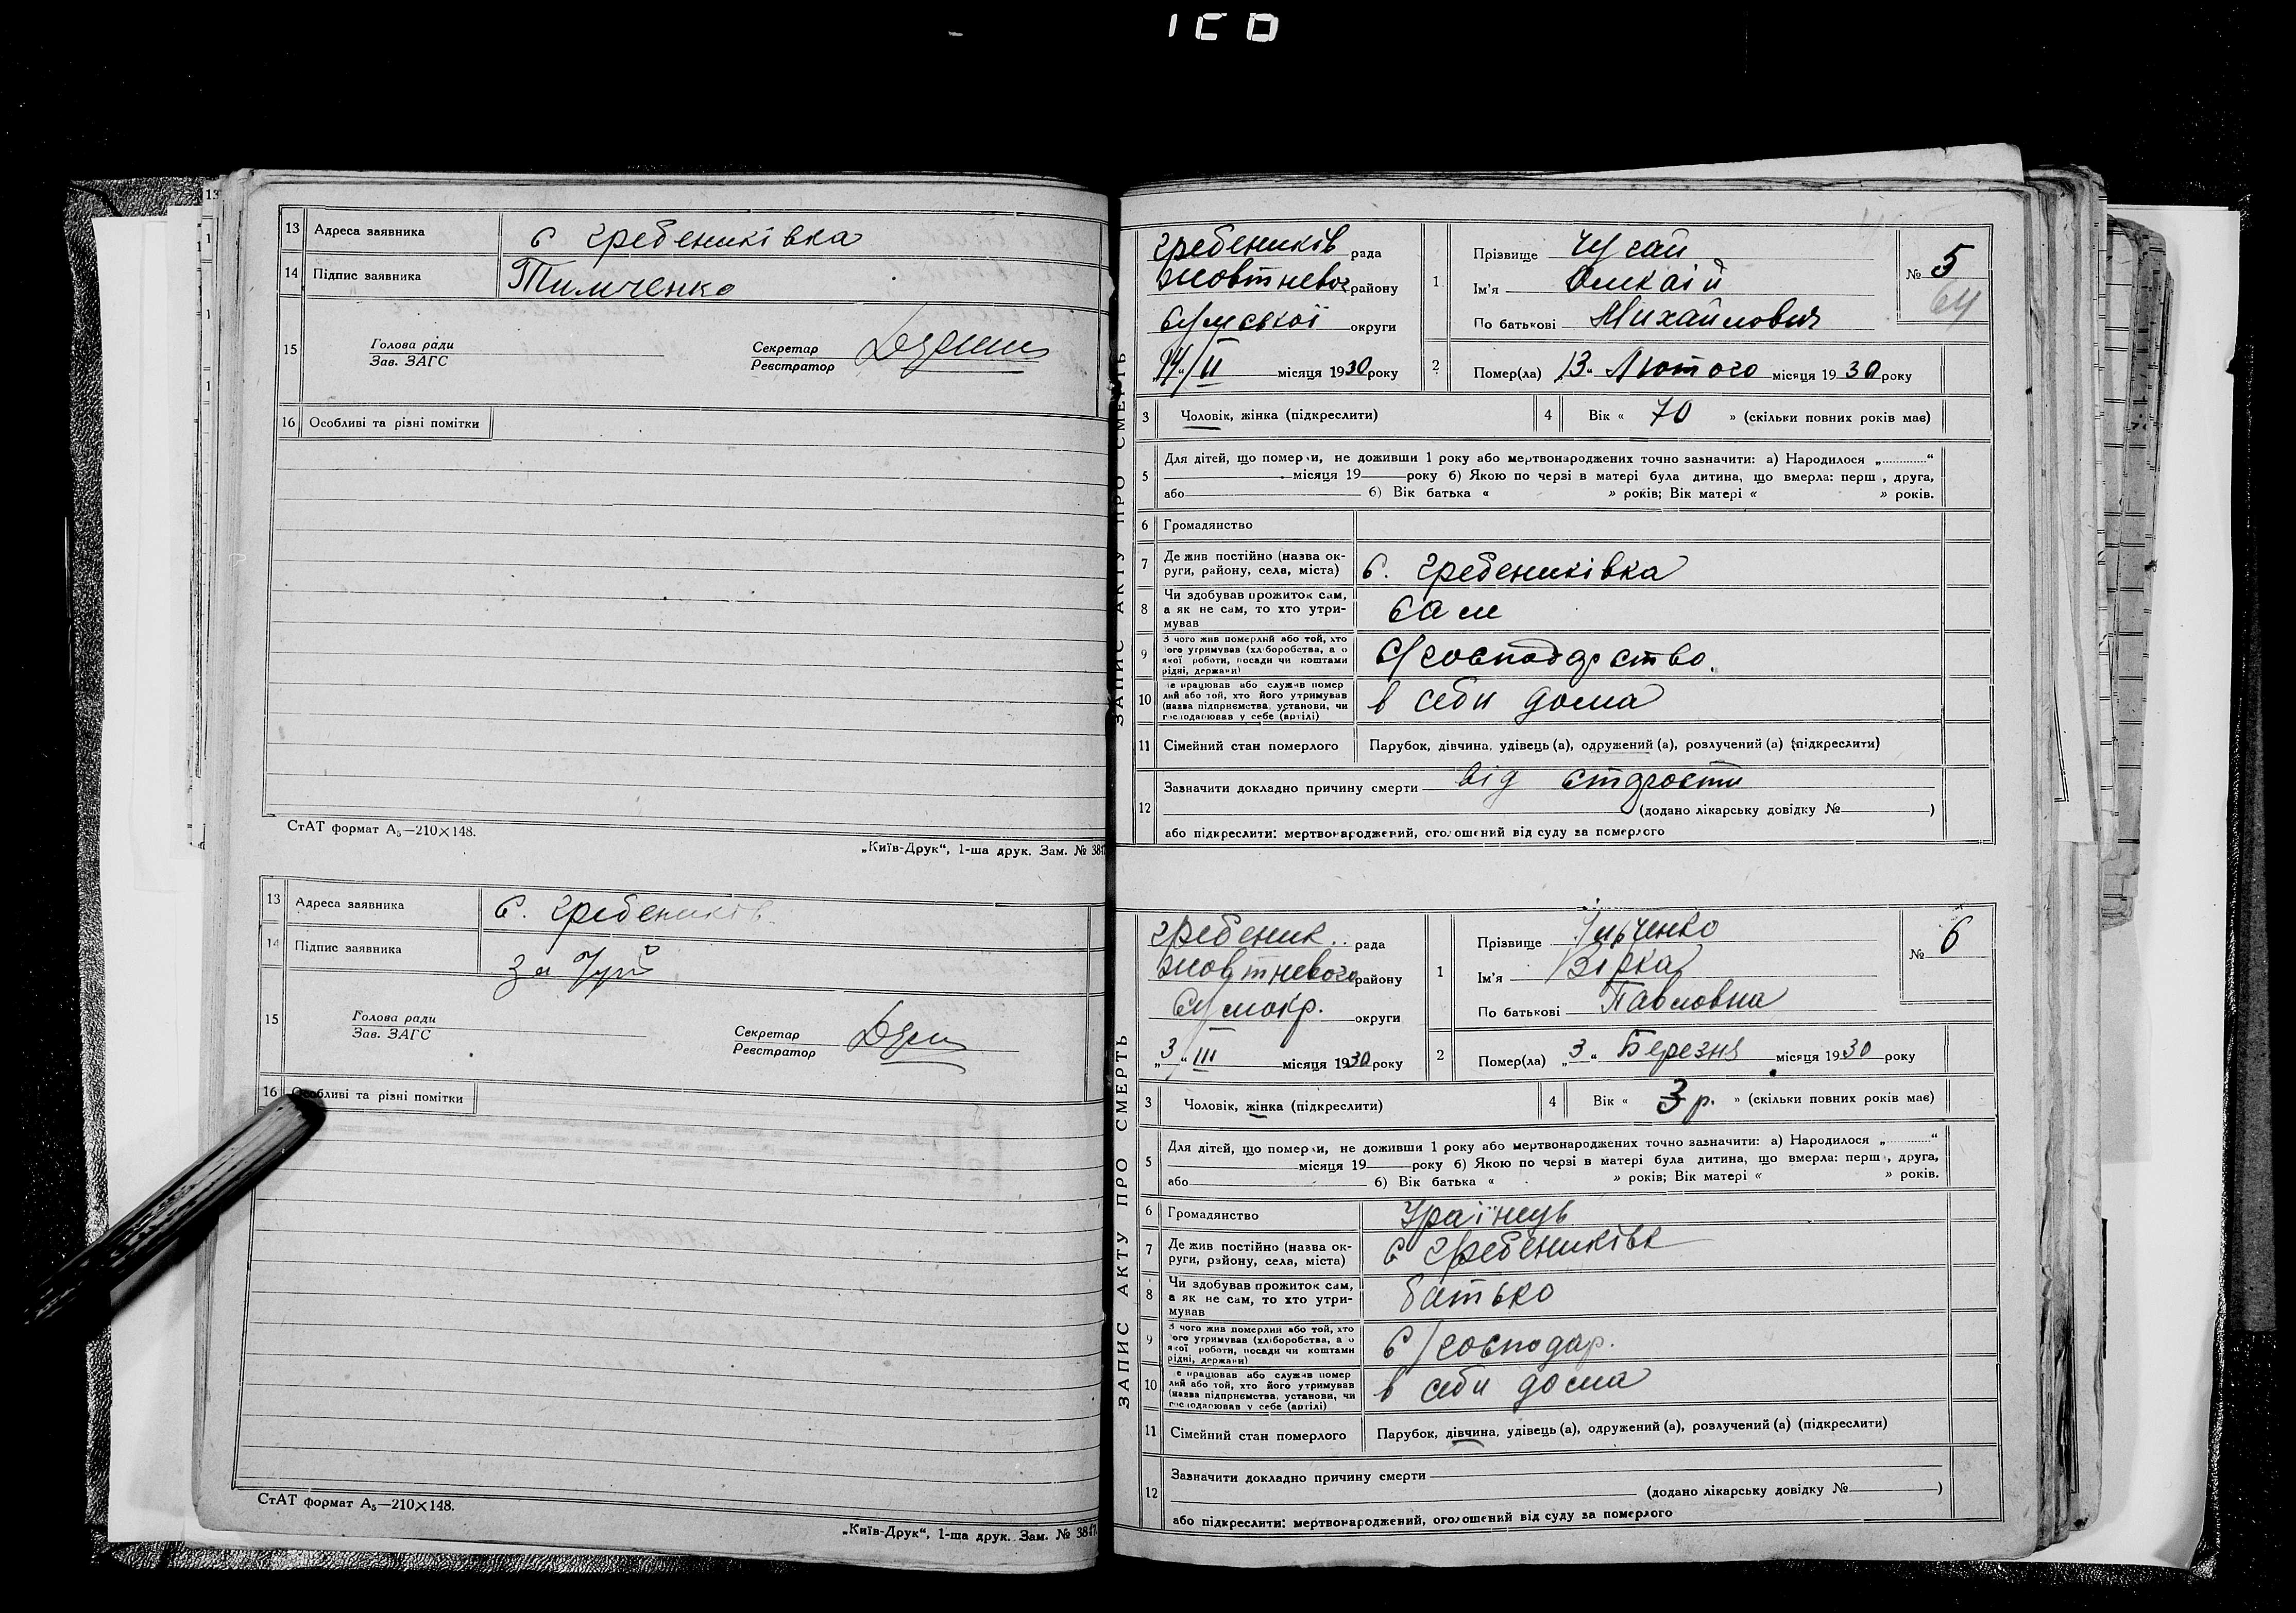 13 Адреса заявника с гребениківка
14 Підпис заявника Тимченко
15 Голова ради
Зав. ЗАГС
Секретар
Реєстратор
16 Особливі та різні помітки
СтАТ формат А₅—210×148.
„Київ-Друк“, 1-ша друк. Зам. № 381
13 Адреса заявника С. гребеників
14 Підпис заявника за
15 Голова ради
Зав. ЗАГС
Секретар
Реєстратор
16 Особливі та різні помітки
СтАТ формат А₅—210×148.
„Київ-Друк“, 1-ша друк. Зам. № 381
ЗАПИС АКТУ ПРО СМЕРТЬ
гребеників рада
Жовтневог району
Сумської округи
„14“/II місяця 1930 року
1 Прізвище
Ім'я
По батькові Михайлович
№ 5
64
2 Помер(ла) „13“ Лютого місяця 1930 року
3 Чоловік, жінка (підкреслити)
4 Вік « 70 » (скільки повних років має)
5 Для дітей, що померли, не доживши 1 року або мертвонароджених точно зазначити: а) Народилося „..........“
місяця 19 року б) Якою по черзі в матері була дитина, що вмерла: перш , друга,
або б) Вік батька « » років; Вік матері « » років.
6 Громадянство
7 Де жив постійно (назва ок-
руги, району, села, міста) С. гребениківка
8 Чи здобував прожиток сам,
а як не сам, то хто утри-
мував сам
9 З чого жив померлий або той, хто
його утримував (хліборобства, а о
якої роботи, посади чи коштами
рідні, держави) С/господарство.
10 Де працював або служив помер
лий або той, хто його утримував
(назва підприємства, установи, чи
господарював у себе (артілі) в себи дома
11 Сімейний стан померлого Парубок, дівчина, удівець (а), одружений (а), розлучений (а) (підкреслити)
12 Зазначити докладно причину смерти від старости
(додано лікарську довідку № )
або підкреслити: мертвонароджений, оголошений від суду за померлого
ЗАПИС АКТУ ПРО СМЕРТЬ
гребеник.. рада
Жовтневого району
Сумокр. округи
„3“ III місяця 1930 року
1 Прізвище
Ім'я
По батькові Павловна
№ 6
2 Помер(ла) „3“ Березня місяця 1930 року
3 Чоловік, жінка (підкреслити)
4 Вік « 3 р. » (скільки повних років має)
5 Для дітей, що померли, не доживши 1 року або мертвонароджених точно зазначити: а) Народилося „..........“
місяця 19 року б) Якою по черзі в матері була дитина, що вмерла: перш , друга,
або б) Вік батька « » років; Вік матері « » років.
6 Громадянство Ураїнець
7 Де жив постійно (назва ок-
руги, району, села, міста) С гребениківк
8 Чи здобував прожиток сам,
а як не сам, то хто утри-
мував батько
9 З чого жив померлий або той, хто
його утримував (хліборобства, а о
якої роботи, посади чи коштами
рідні, держави) С/господар.
10 Де працював або служив помер
лий або той, хто його утримував
(назва підприємства, установи, чи
господарював у себе (артілі) в себи дома
11 Сімейний стан померлого Парубок, дівчина, удівець (а), одружений (а), розлучений (а) (підкреслити)
12 Зазначити докладно причину смерти
(додано лікарську довідку № )
або підкреслити: мертвонароджений, оголошений від суду за померлого